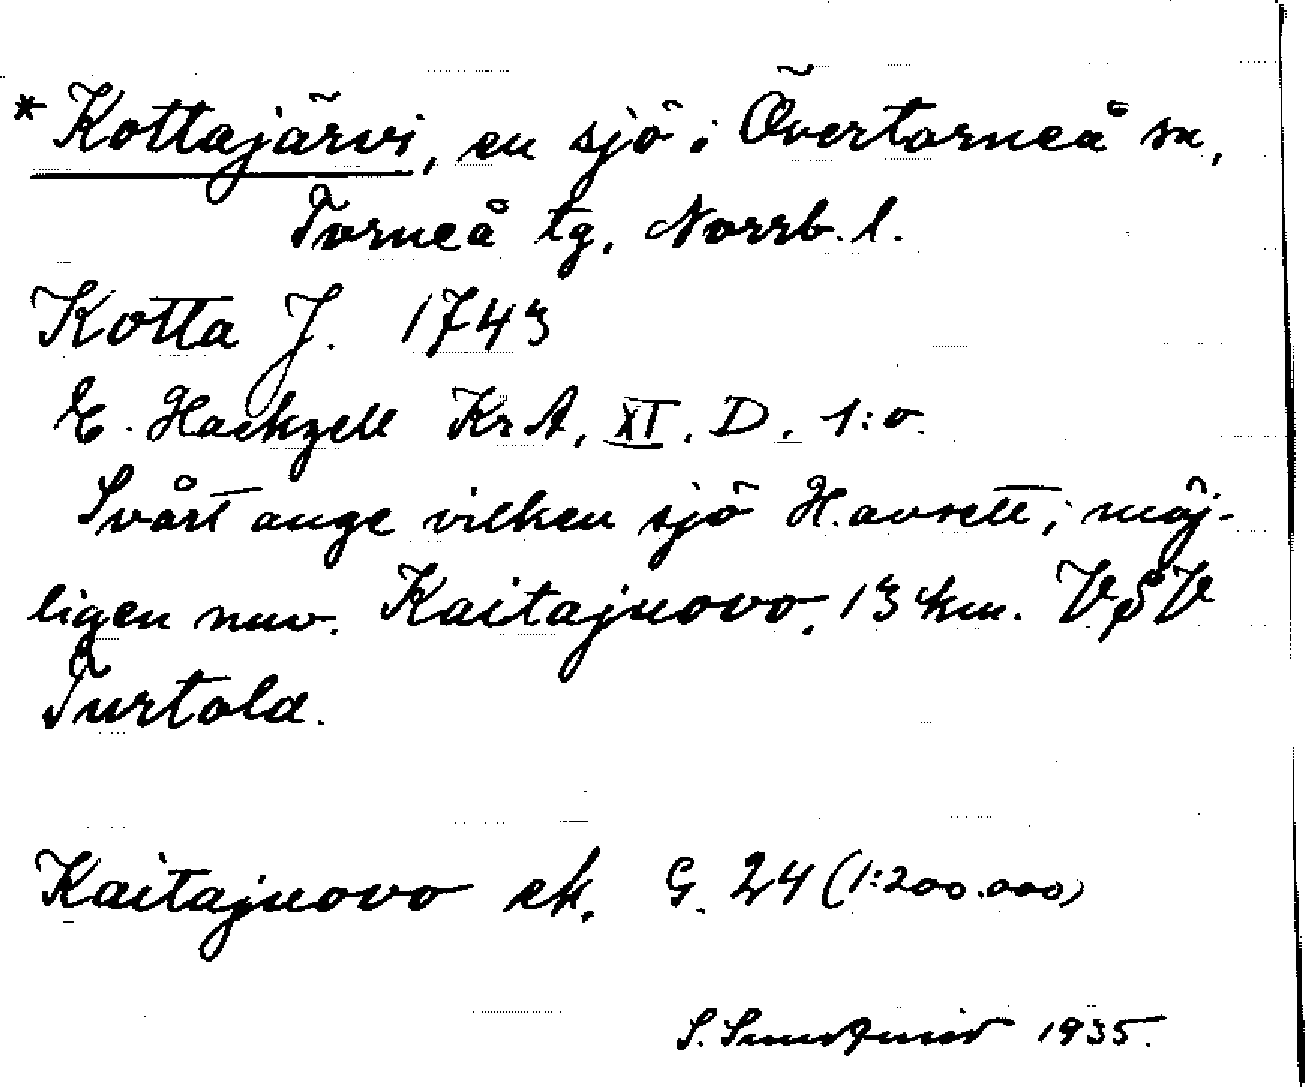 *Kottajärvi, en sjö i Övertorneå sn,
Torneå tg, Norrb. l.
Kotta J. 1743
E. Hackzell KrA, XI. D. 1:o
Svårt ange vilken sjö H. avsett; möj-
ligen nuv. Kaitajuovo, 13 km. VSV
Turtola.
Kaitajuovo ek. G. 24 (1:200.000)
S. 1935.